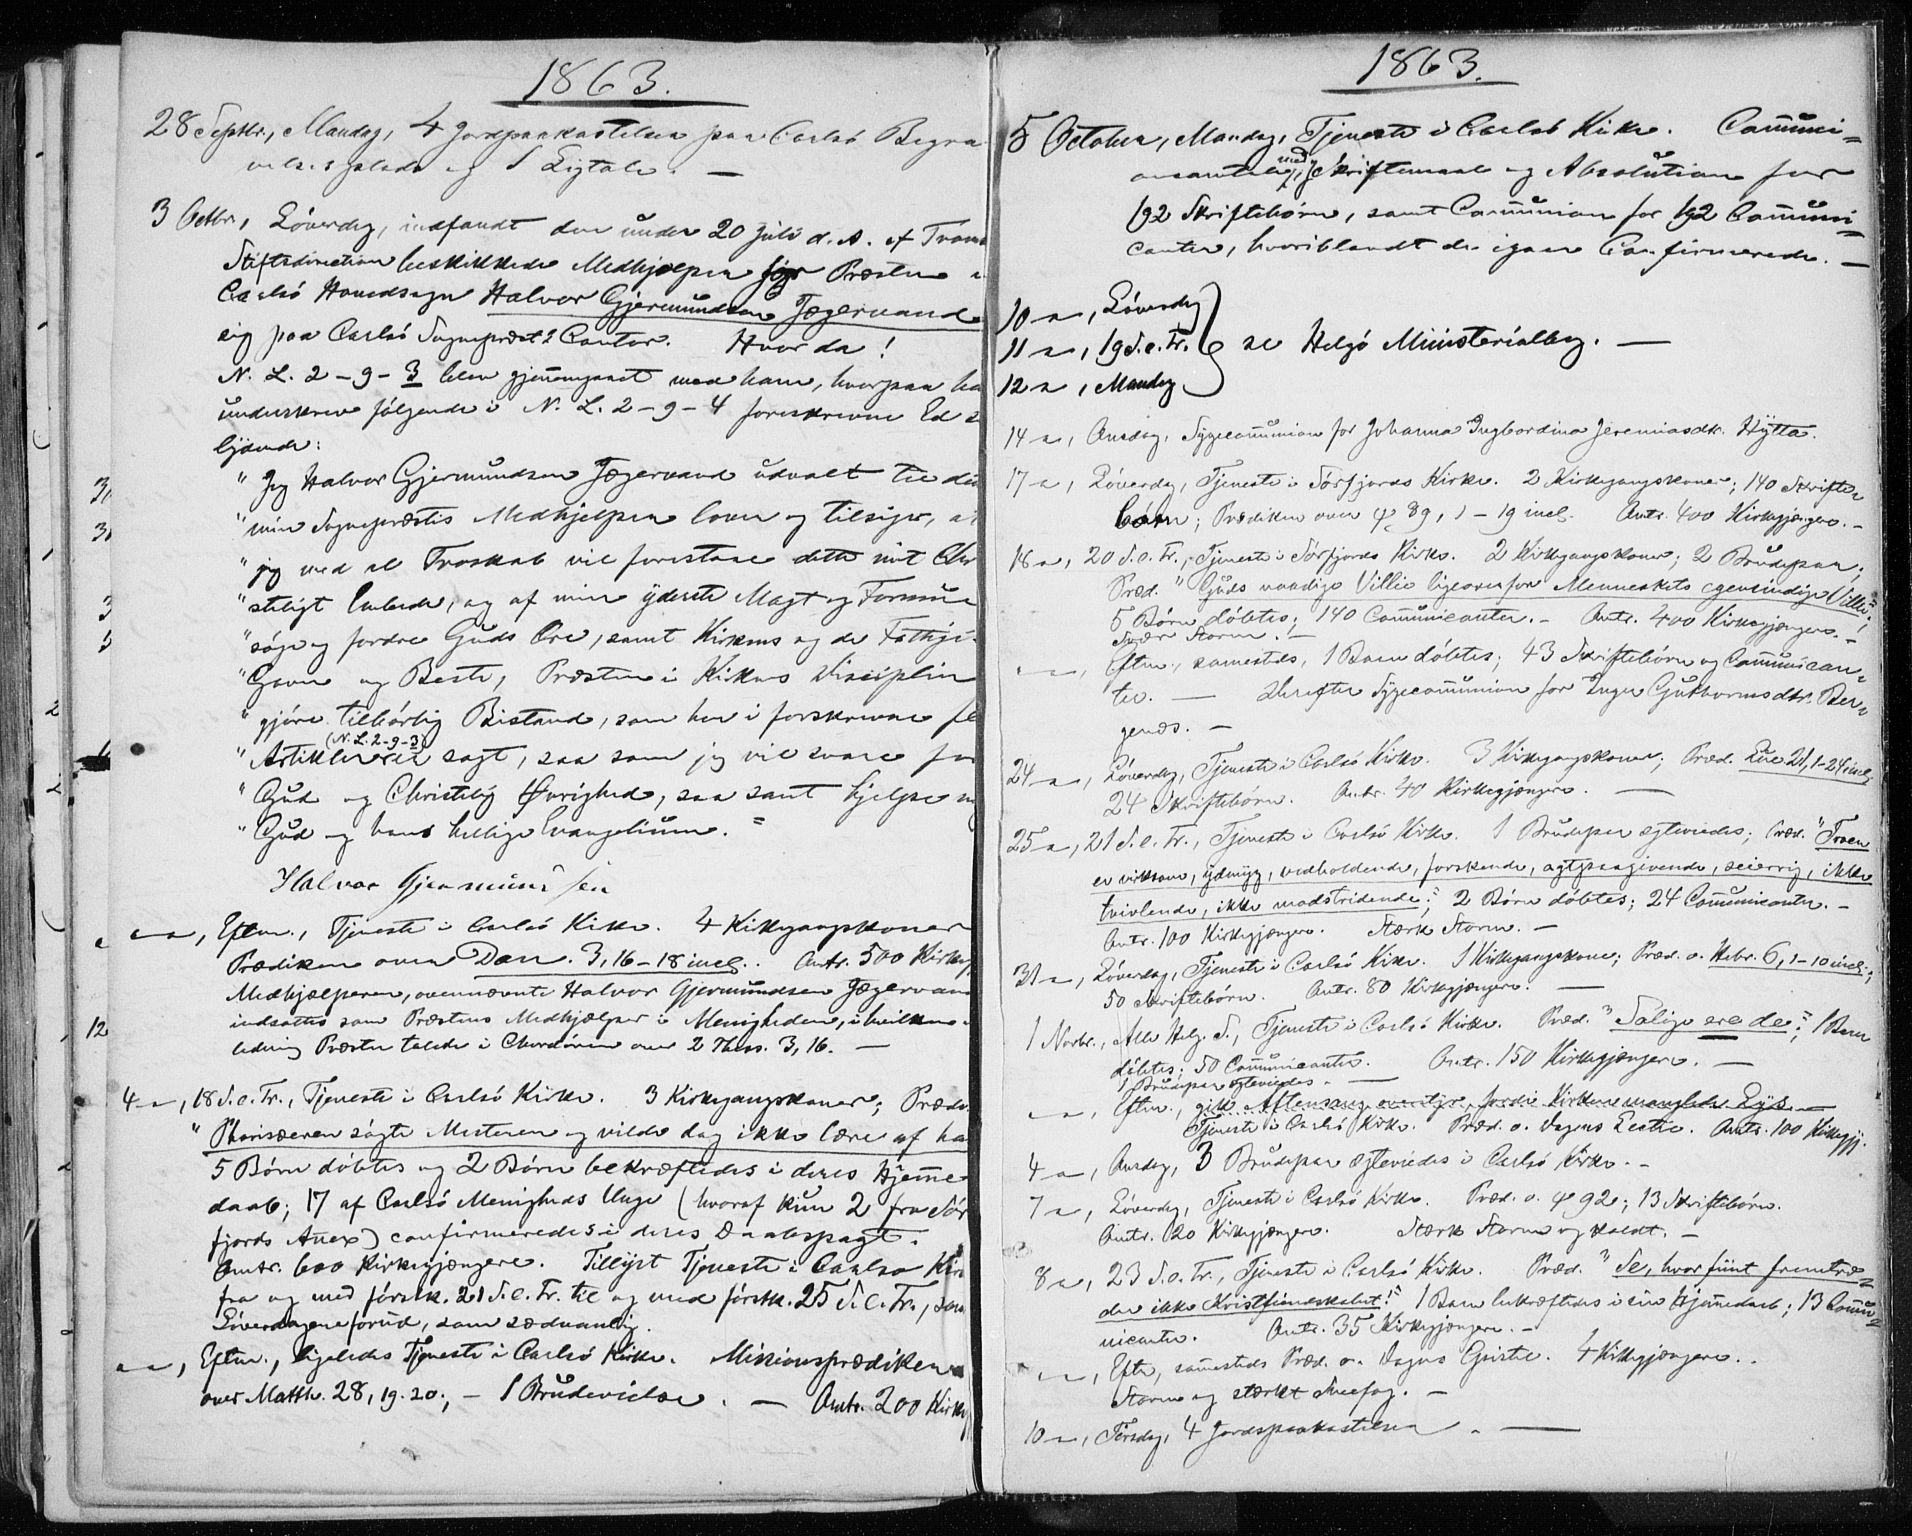 1863.
28 Septbr., Mandag, 4 Jordpaakastelser paa Carlsö Begra
velsesplads og 1 Ligtale. —
3 Octbr., Löverdag, indfandt den under 20 Juli d. A. af Troms
Stiftsdirection beskikkede Medhjelper for Præsten i
Carlsö Hovedsogn Halvor Gjermundsen Jægervand
sig paa Carlsö Sognepræst's Contor. Hvor da!
N. L. 2-9-3 blev gjennemgaaet med ham, hvorpaa ha
underskrev følgende i N. L. 2-9-4 foreskrevne Ed s
lydende:
" Jeg Halvor Gjermundsen Jægervand udvalt til
" min Sognepræstis Medhjelper lover og tilsiger, at
" jeg med al Troskab vil forestaae dette mit Chr
" steligt Embede, og af min yderste Magt og Formue
" søge og fordre Guds Ære, samt Kirkens og de Fattiges
" Gavn og Beste, Præsten i Kirkens Disciplin
" gjöre tilbörlig Bistand, som her i forskrevne
(N. L. 2-9-3)
" Artikler er sagt, saa som jeg vil svare for
" Gud og Christelig Øvrighed, saa sant hjelpe mig
" Gud og hans hellige Evangelium."
Halvor Gjermundsen
— " —, Eftm., Tjeneste i Carlsö Kirke. 4 Kirkegangskoner
Prædiken over Dan. 3, 16-18 incl. Omtr. 500 Kirkeg
Medhjælperen, ovennævnte Halvor Gjermundsen Jægervand
indsattes som Præstens Medhjælper i Menigheden, i hvilken
ledning Præsten talede i Chordören over 2 Thess. 3, 16. —
4 — " —, 18 S. e. Tr., Tjeneste i Carlsö Kirke. 3 Kirkegangskoner; Præd.
" Pharisæeren søgte Mesteren og vilde dog ikke lære af ha
5 Børn döbtes og 2 Börn bekræftedes i deres Hjemme
daab; 17 af Carlsö Menigheds Unge (hvoraf kun 2 fra Sör
fjords Anex) confirmeredes i deres Daabspagt.
Omtr. 600 Kirkegjængere. Tillyst Tjeneste i Carlsö Kir
fra og med förstk. 21 S. e. Tr. til og med förstk. 25 S. e. Tr., sam
Löverdagene forud, som sædvanlig.
— " —, Eftm., ligeledes Tjeneste i Carlsö Kirke. Missionsprædiken
over Matth. 28, 19. 20; — 1 Brudevielse. — Omtr. 200 Kirkeg
1863.
5 October, Mandag, Tjeneste i Carlsö Kirke. Communi-
med Skriftemaal og Absolution for
192 Skriftebörn, samt Communion for 192 Communi-
canter, hvoriblandt de igaar Confirmerede. —
10 — " —, Löverdag
11 — " —, 19 S. e. Tr. se Helgö Ministerialbog. —
12 — " —, Mandag
14 — " —, Onsdag, Sygecommunion for Johanna Ingbordina Jeremiasdtr. Hytta.
17 — " —, Löverdag, Tjeneste i Sörfjords Kirke. 2 Kirkegangskoner; 140 Skrifte-
börn; Prædiken over ψ 89, 1-19 incl. Omtr. 400 Kirkegjængere. —
18 — " —, 20 S. e. Tr., Tjeneste i Sörfjords Kirke. 2 Kirkegangskoner; 2 Brudepar;
Præd. "Guds naadige Villie ligeoverfor Menneskets egensindige Villie";
5 Börn döbtes; 140 Communicanter. — Omtr. 400 Kirkegjængere. —
Svær Storm. —
— " —, Eftm., sammesteds, 1 Barn döbtes; 43 Skriftebörn og Communican-
ter. — Derefter Sygecommunion for Inger Guthormsdtr. Ber-
genæs. —
24 — " —, Löverdag, Tjeneste i Carlsö Kirke. 3 Kirkegangskoner; Præd. Luc 21, 1-24 incl.
24 Skriftebörn. Omtr. 40 Kirkegjængere. —
25 — " —, 21 S. e. Tr., Tjeneste i Carlsö Kirke. 1 Brudepar egteviedes; Præd. "Troen
er virksom, ydmyg, vedholdende, forskende, agtpaagivende, seierrig, ikke
tvivlende, ikke modstridende"; 2 Börn döbtes; 24 Communicanter. —
Omtr. 100 Kirkegjængere. Stærk Storm. —
31 — " —, Löverdag, Tjeneste i Carlsö Kirke. 1 Kirkegangskone; Præd. o. Hebr. 6, 1-10 incl.;
50 Skriftebörn. Omtr. 80 Kirkegjængere. —
1 Novbr., Alle Helg. S., Tjeneste i Carlsö Kirke. Præd. "Salige ere de"; 1 Barn
döbtes; 50 Communicanter. Omtr. 150 Kirkegjængere. —
1 Brudepar egteviedes. —
— " —, Eftm., gik Aftensang overstyr, fordi Kirken manglede Lys. —
Tjeneste i Carlsö Kirke. Præd. o. Dagens Lectie. Omtr. 100 Kirkegj.
4 — " —, Onsdag, 3 Brudepar egteviedes i Carlsö Kirke. —
7 — " —, Löverdag, Tjeneste i Carlsö Kirke. Præd. o. ψ 92; 13 Skriftebörn.
Omtr. 20 Kirkegjængere. Stærk Storm og Koldt. —
8 — " —, 23 S. e. Tr., Tjeneste i Carlsö Kirke. Præd. "Se, hvor fiint fremtræ-
der ikke Kristfiendskabet!" 1 Barn bekræftedes i sin Hjemmedaab; 13 Commu-
nicanter. Omtr. 35 Kirkegjængere. —
— " —, Eftm., sammesteds Præd. o. Dagens Epistel. 4 Kirkegjængere. —
Storm og stærkt Sneefog. —
10 — " —, Tirsdag, 4 Jordspaakastelser. —